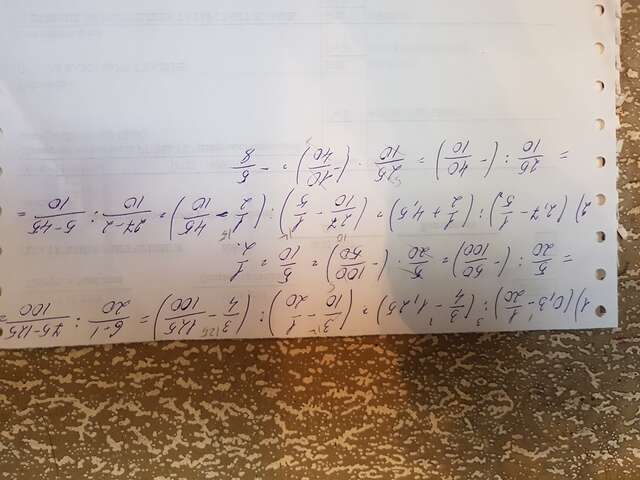 1) (0,3 - 1/20) : (3/4 - 1,25) = (3/10 - 1/20) : (3/4 - 125/100) = 6-1/20 : 75-125/100 =
= 5/20 : (- 50/100) = 5/20 · (- 100/50) = 5/10 = 1/2.
2) (2,7 - 1/5) : (1/2 + 4,5) = (27/10 - 1/5) : (1/2 - 45/10) = 27-2/10 : 5-45/10 =
= 25/10 : (- 40/10) = 25/10 · (- 10/40) = - 5/8